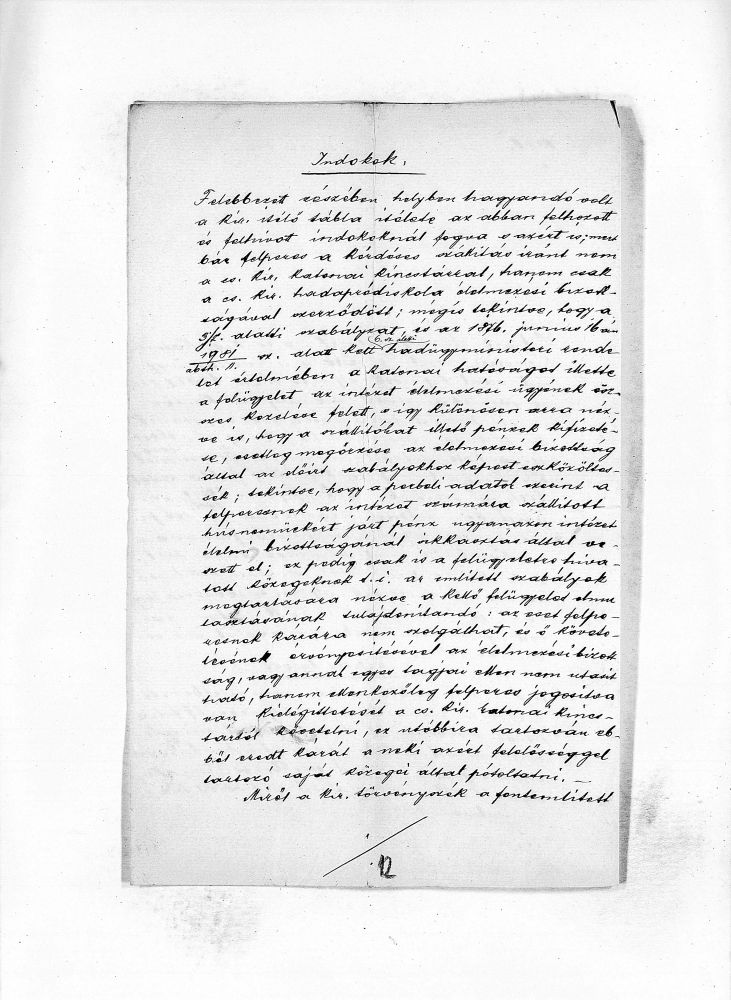 Indokok.
Felebbezett részében helyben hagyandó volt
a kir. itélő tábla itélete az abban felhozott
és felhivott indokoknál fogva s azért is; mert
bár felperes a kérdéses szállitás iránt nem
a cs. kir. katonai kincstárral, hanem csak
a cs. kir. hadapródiskola élelmezési bizott-
ságával szerződött; megis tekintve, hogy a
alatti szabályzat, és az 1876. junius 16 án
1981 sz. alatt kelt hadügyministeri rende-
abth. 11. 6. sz. alatti
let értelmében a katonai hatóságot illette
a felügyelet az intézet élelmezési ügyének ösz-
szes kezelése felett, s igy különösen arra néz-
ve is, hogy a szállitókat illető pénzek kifizeté-
se, esetleg megőrzése az élelmezési bizottság
által az előirt szabályokhoz képest eszközöltes-
sék; tekintve, hogy a perbeli adatok szerint a
felperesnek az intézet számára szállitott
húsneműekért járt pénz ugyanazon intézet
élelmi bizottságánál sikkasztás által ve-
szett el; ez pedig csak is a felügyeletre hiva-
tott közegeknek t. i. az emlitett szabályok
megtartására nézve a kellő felügyelet elmu-
lasztásának tulajdonitandó: az eset felpe-
resnek kárára nem szolgálhat, és ő követe-
lésének érvényesitésével az élelmezési bizott-
ság, vagy annak egyes tagjai ellen nem utasit-
ható, hanem ellenkezőleg felperes jogositva
van kielégittetését a cs. kir. katonai kincs-
tártól követelni, ez utóbbira tartozván eb-
ből eredt kárát a neki azért felelősséggel
tartozó saját közegei által pótoltatni. —
Miről a kir. törvényszék a fentemlitett
12